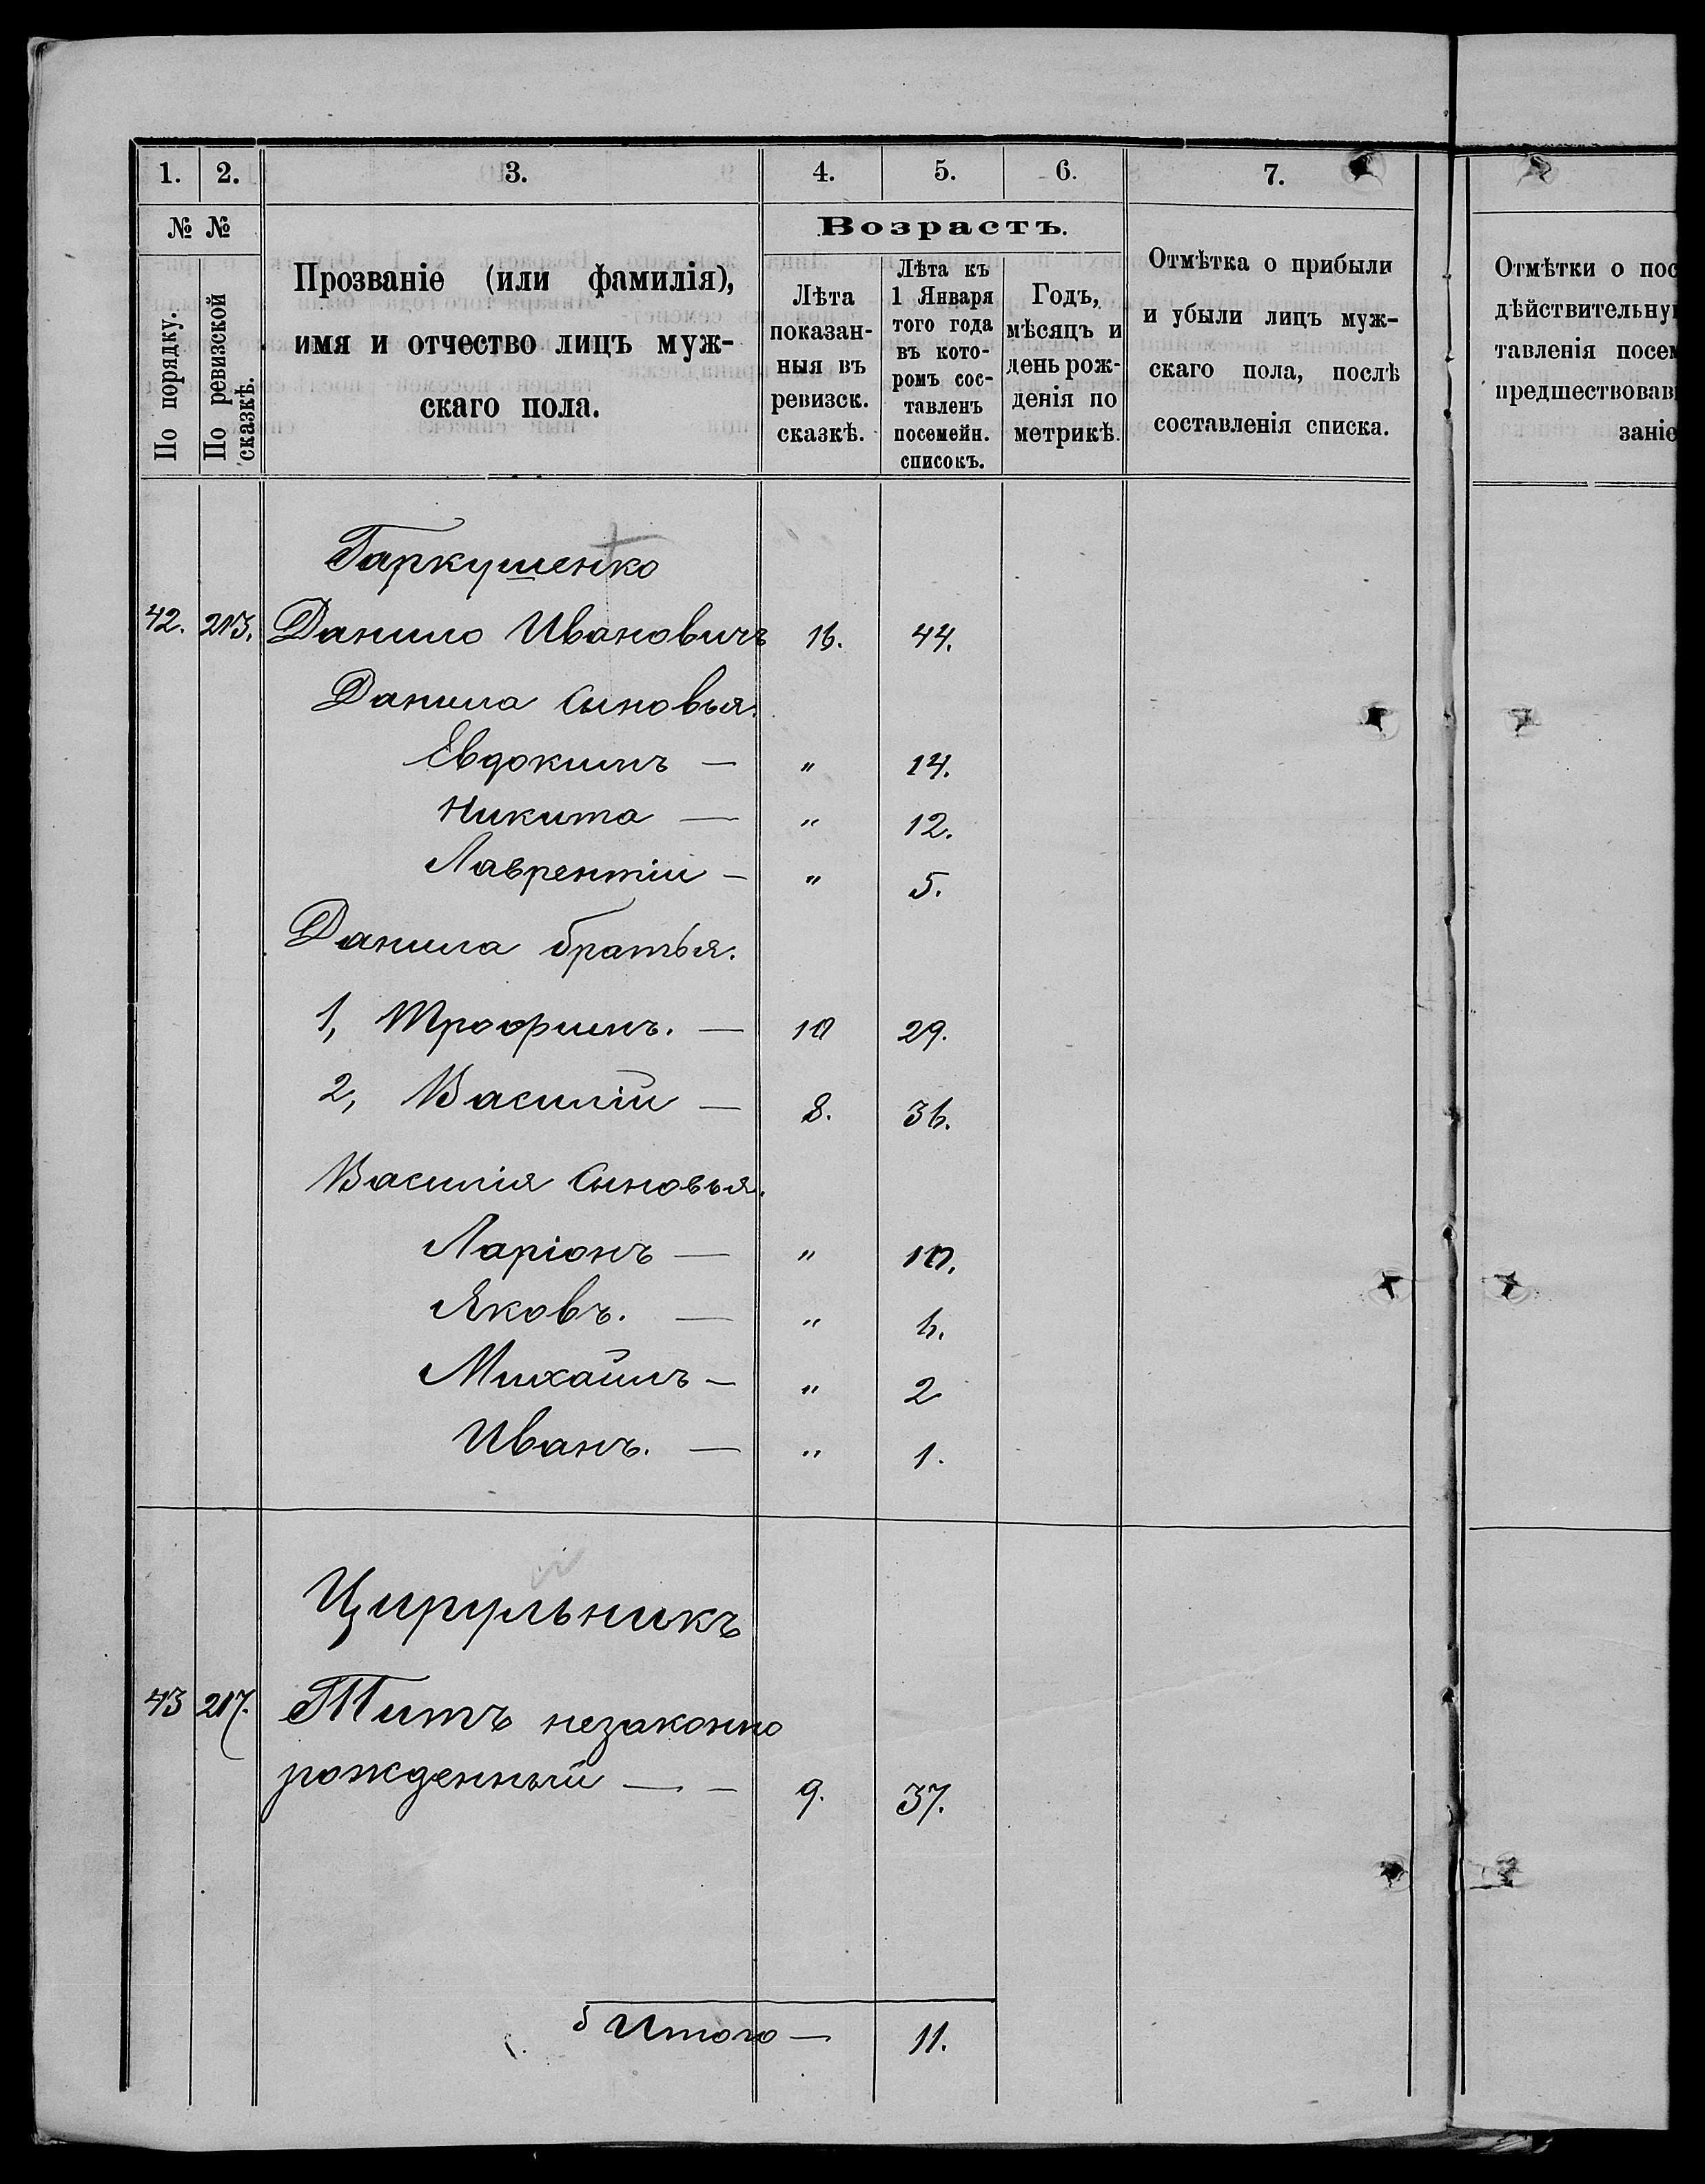 1. 2. 3. 4. 5. 6. 7.
№ №
По порядку.
По ревизской сказкѣ.
Прозваніе (или фамилія),
имя и отчество лицъ муж-
скаго пола.
Возрастъ.
Лѣта
показан-
ныя въ
ревизск.
сказкѣ.
Лѣта къ
1 Января
того года
въ кото-
ромъ сос-
тавленъ
посемейн.
списокъ.
Годъ,
мѣсяцъ и
день рож-
денія по
метрикѣ.
Отмѣтка о прибыли
и убыли лицъ муж-
скаго пола, послѣ
составленія списка.
Отмѣтки о пос
дѣйствительну
тавленія посем
предшествовав
заніе
Гаркушенко
42. 213. Данило Ивановичъ 16. 44.
Данила сыновья.
Евдокимъ — " 14.
Никита — " 12.
Лаврентій — " 5.
Данила братья.
1, Трофимъ. — 10 29.
2, Василій — 8. 36.
Василія сыновья.
Ларіонъ — " 10.
Яковъ. — " 6.
Михайлъ — " 2
Иванъ. — " 1.
Цирульникъ
43 217. Титъ незаконно
рожденный — — 9. 37.
Итого — 11.